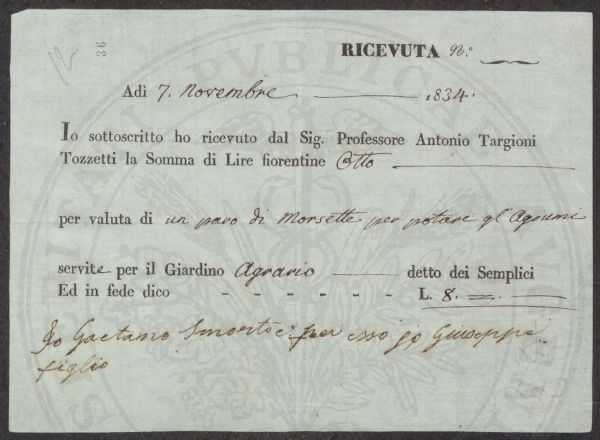 12
36
RICEVUTA N.°
Adì 7. Novembre 1834.
Io sottoscritto ho ricevuto dal Sig. Professore Antonio Targioni
Tozzetti la Somma di Lire fiorentine Otto
per valuta di un paro di Morsette per potare gl'Agrumi
servite per il Giardino Agrario detto dei Semplici
Ed in fede dico - - - - - - L. 8. =
Io Gaetano per esso io Giuseppe
figlio